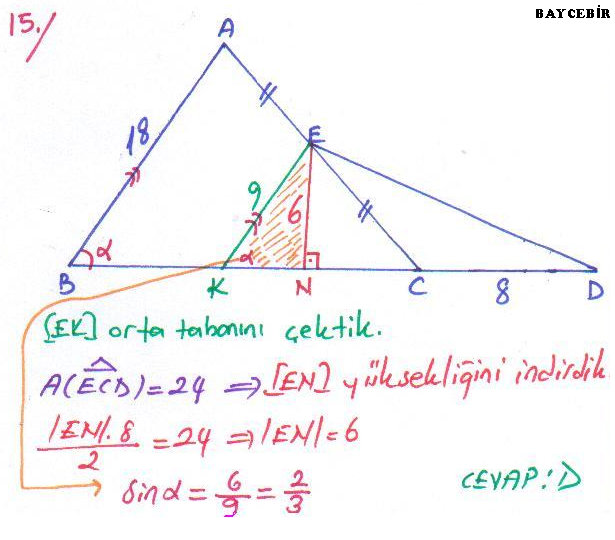 BAYCEBİR
15./
A
18
E
9
6
α
α
B
K
N
C
8
D
[EK] orta tabanını çektik.
A(ECD)=24 ⇒ [EN] yüksekliğini indirdik.
|EN|.8/2 = 24 ⇒ |EN|=6
Sinα = 6/9 = 2/3
CEVAP: D